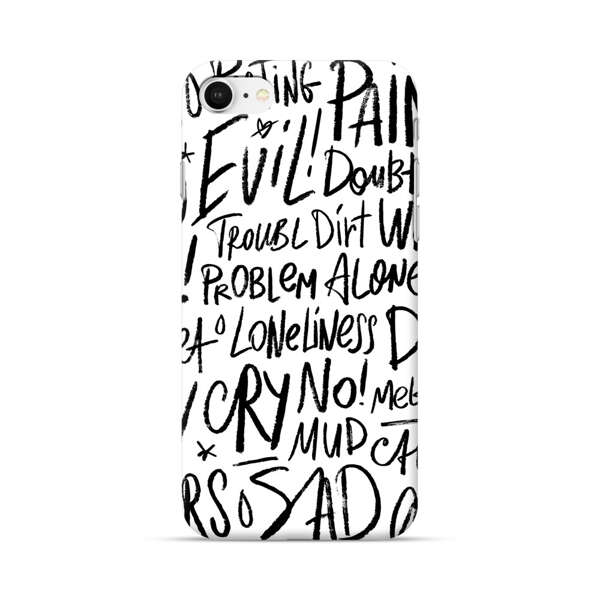 PAIN
EVIL! Doubt
TROUBL Dirt W
! PROBLEM ALONE
LONELINESS D
CRY NO!
MUD
RS SAD